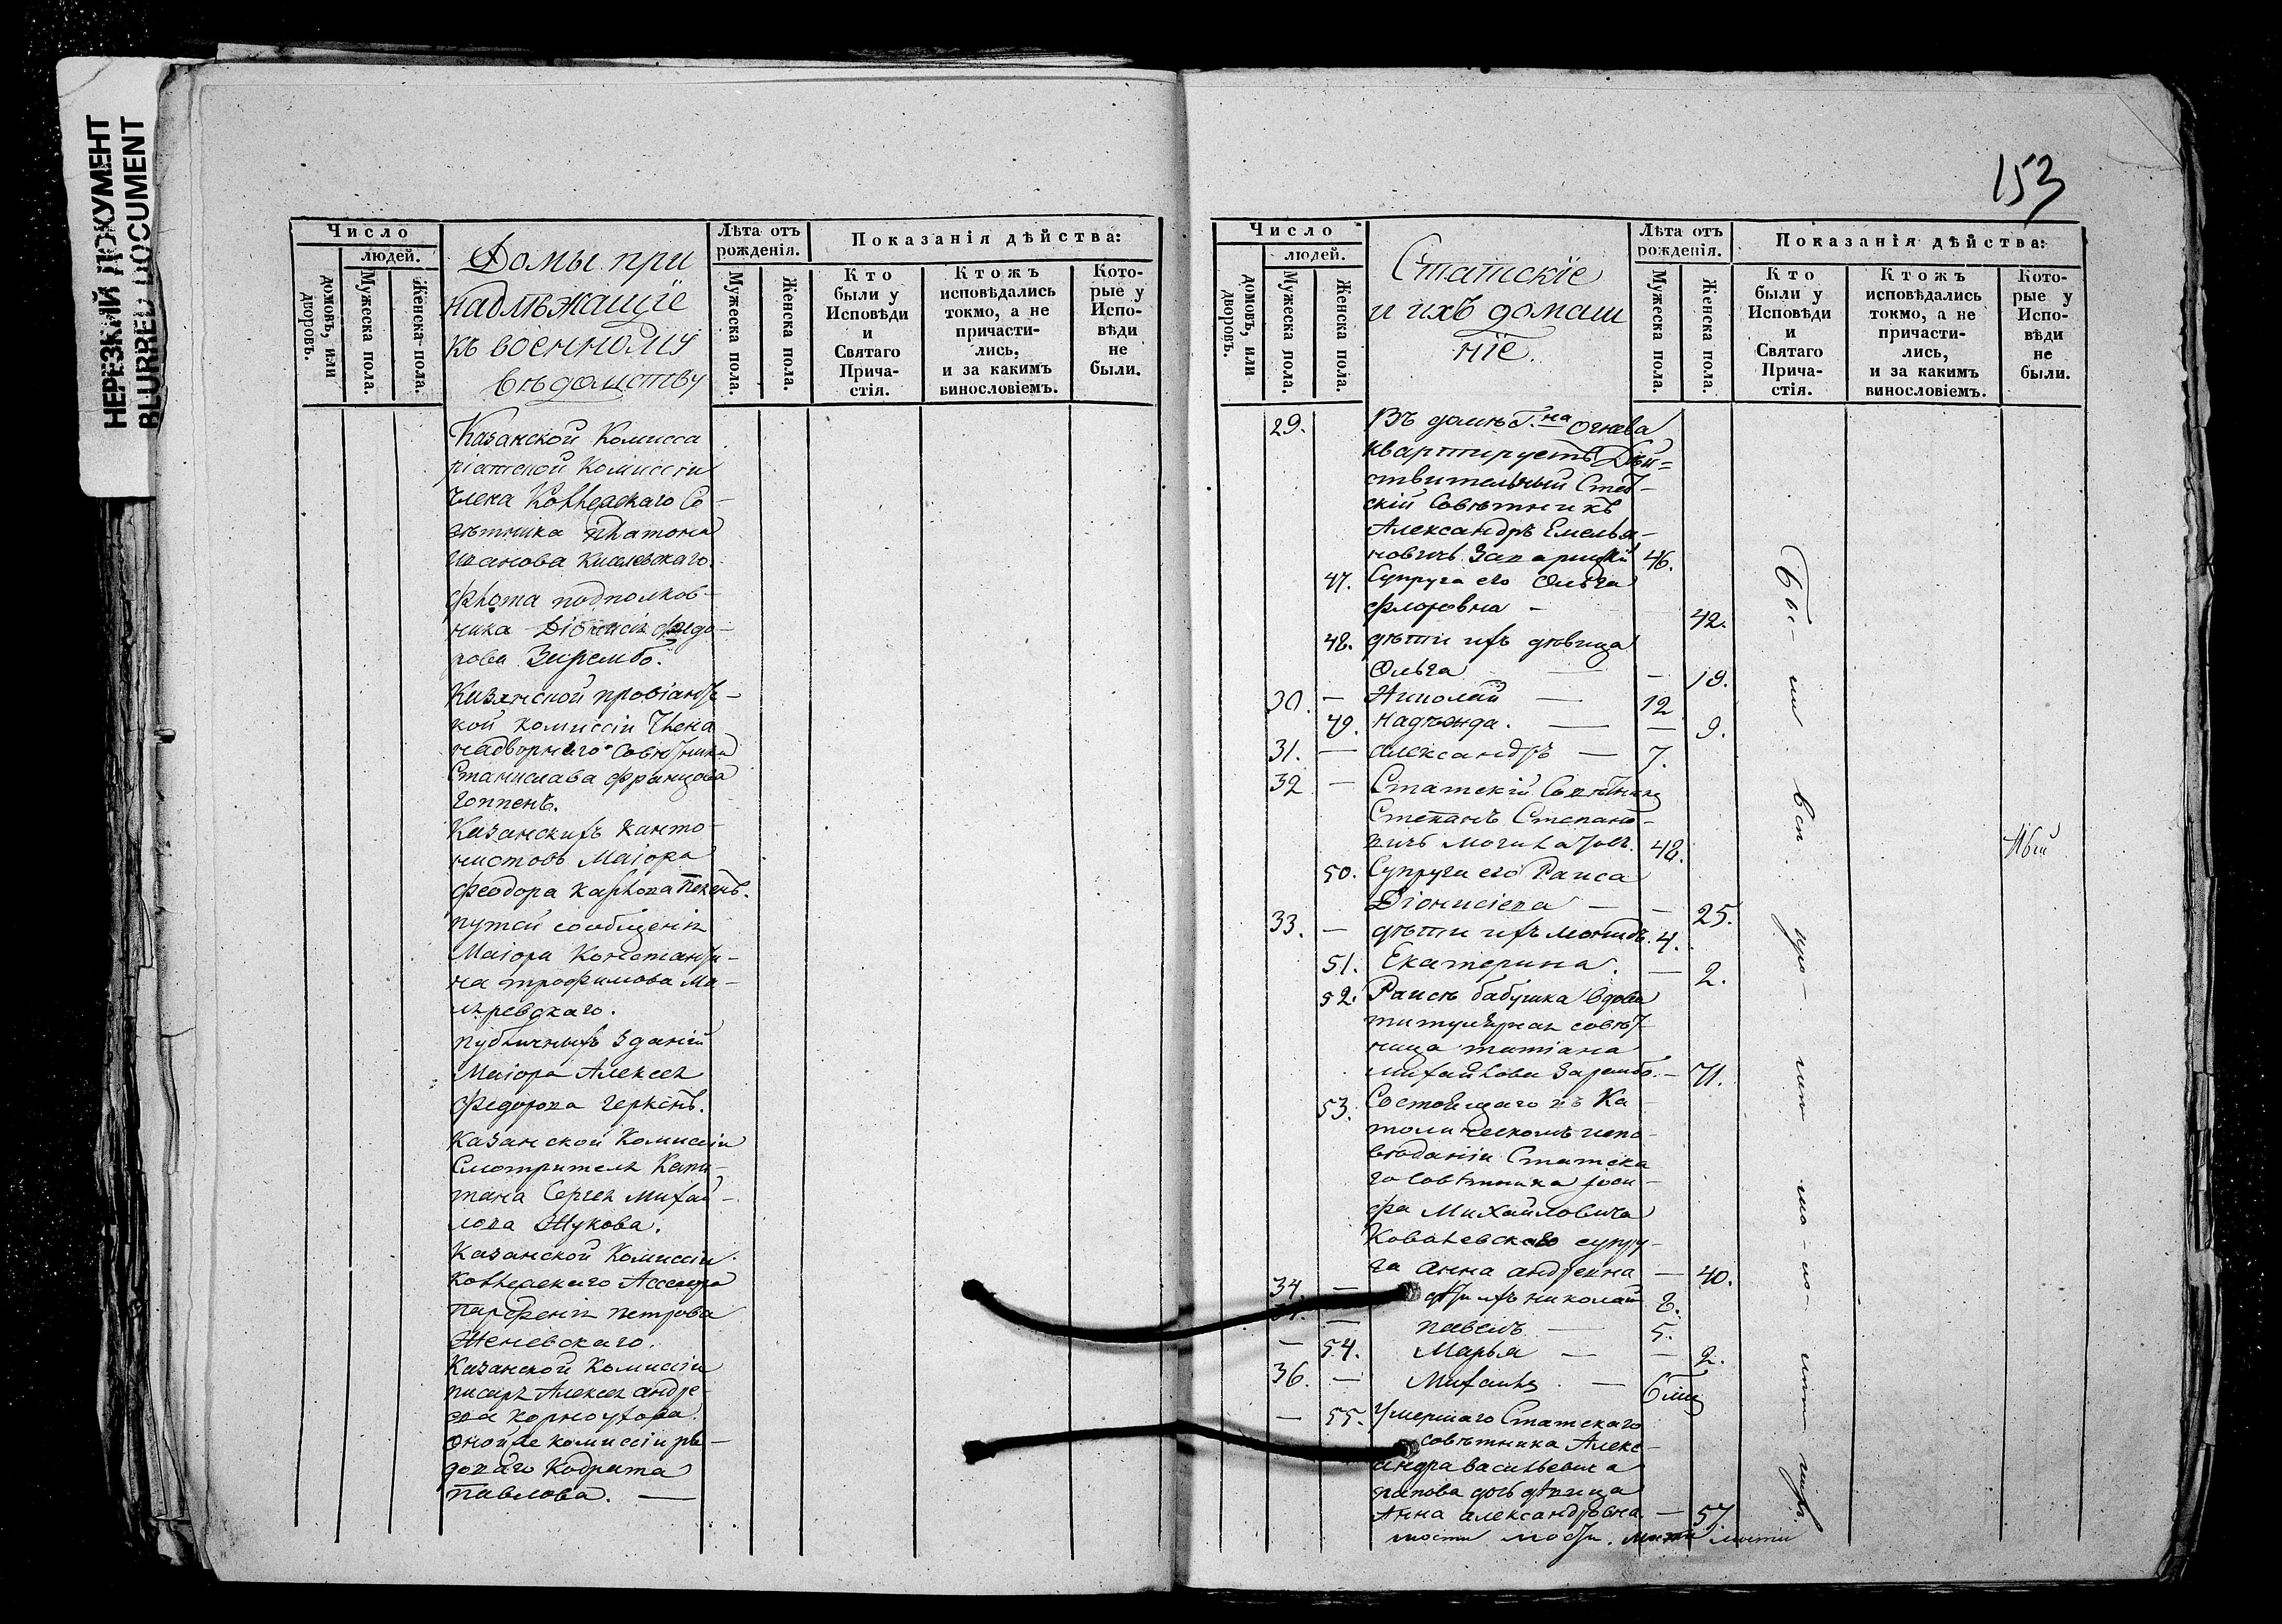 НЕРЕЗКИЙ ДОКУМЕНТ
BLURRED DOCUMENT
Число
людей.
домовъ, или дворовъ.
Мужеска пола.
Женска пола.
Домы при
надлѣжащіе
къ военному
вѣдомству
Лѣта отъ
рожденія.
Мужеска пола.
Женска пола.
Показанія дѣйства:
Кто
были у
Исповѣди
и
Святаго
Прича-
стія.
Ктожъ
исповѣдались
токмо, а не
причасти-
лись,
и за какимъ
винословіемъ.
Кото-
рые у
Испо-
вѣди
не
были.
Казанской Комисса
ріатской Комиссіи
члена Коллежскаго Со-
вѣтника Платона
Иванова
флота подполков-
ника Діонисія Федо-
рова Зарембо.
Казанской провіантс-
кой комиссіи Члена
надворнаго Совѣтника
Станислава Францова
Гоппенъ.
Казанскихъ канто-
нистовъ Маіора
Феодора Карлова
путей сообщенія
Маіора Константи-
на Трофимова Ма-
ревскаго.
публичныхъ зданій
Маіора Алексея
Федорова Геркенъ.
Казанской Комиссіи
Смотрителя Капи-
тана Сергея Михай-
лова Жукова.
Казанской Комиссіи
Коллежскаго Ассесора
Парфенія Петрова
Женевскаго.
Казанской Комиссіи
писаря Алексея Андре-
ева Корноухова.
Оной же комиссіи ря-
доваго Кодрата
Павлова. —
153
Число
людей.
домовъ, или дворовъ.
Мужеска пола.
Женска пола.
Статскіе
и ихъ домаш
ніе.
Лѣта отъ
рожденія.
Мужеска пола.
Женска пола.
Показанія дѣйства:
Кто
были у
Исповѣди
и
Святаго
Прича-
стія.
Ктожъ
исповѣдались
токмо, а не
причасти-
лись,
и за какимъ
винословіемъ.
Кото-
рые у
Испо-
вѣди
не
были.
29. Въ домѣ Г.на Огнева
квартируетъ Дѣй=
ствительный Стат-
скій Совѣтникъ
Александръ Емелья-
новичь 46.
47. Супруга его Ольга
Флоровна — 42.
48. дѣти ихъ дѣвица
Ольга — — 19.
30. — Николай — 12
49. Надѣжда. — — 9.
31. — Александръ — 7.
32 — Статскій Совѣтникъ
Степанъ Степано-
вичъ 48.
50. Супруга его Раиса
Діонисіева — — 25.
33. — дѣти ихъ 4.
51. Екатерина. — 2.
52. Раисѣ бабушка вдова
титулярная совѣт-
ница Татіана
Михайлова Зарембо. — 71.
53. Состоящаго въ Ка-
толическомъ испо-
вѣданіи Статска
го Совѣтника Іоси-
фа Михайловича
Ковалевскаго супру-
га Анна Андревна — 40.
34. — дѣти ихъ Николай 8.
— Павелъ — 5.
— 54. Марья — — 2.
36. — Михаилъ. — 6 мѣц
— 55. Умершаго Статскаго
совѣтника Алекс-
андра Васильевича
попова дочь дѣвица
Анна Александровна. — 57